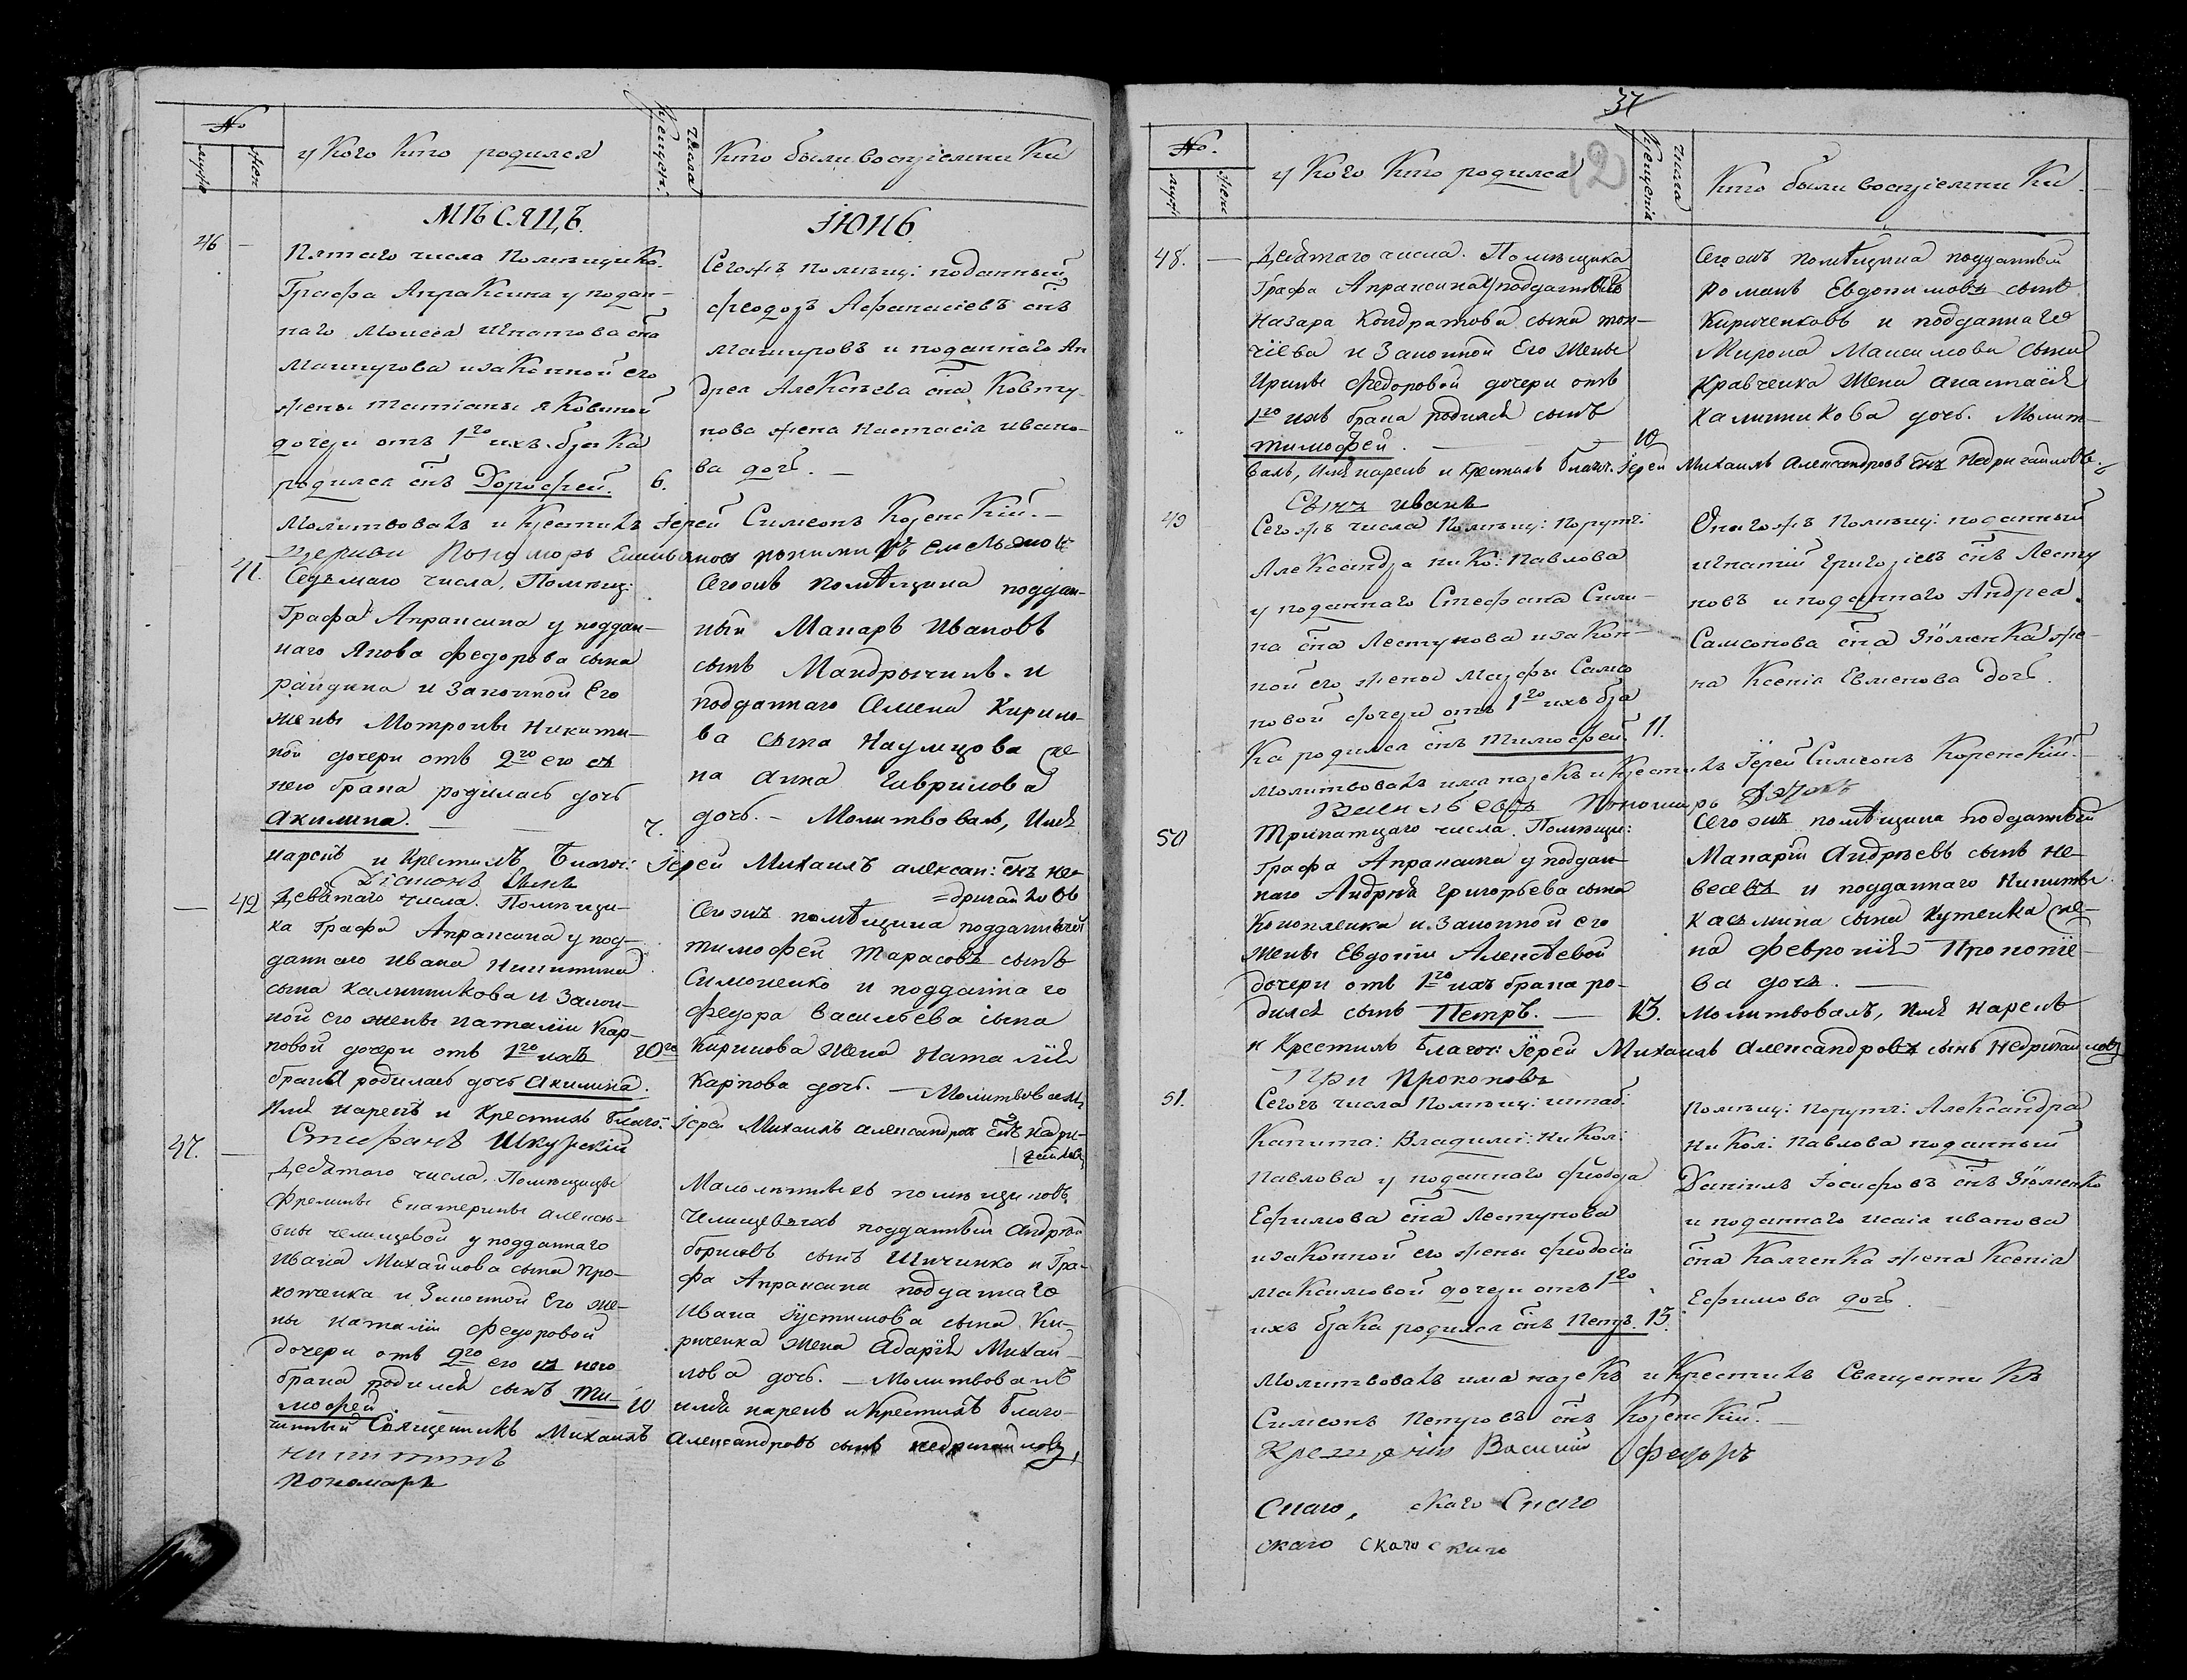 №
муж
жен
у Кого Кто родился
числа Крещен:
Кто были воспріемники
МѢСЯЦЪ
ІЮНЬ
46 —
Пятаго числа Помѣщика
Графа Апраксина у подан-
наго Моисея Игнатова сна
Машурова и законной его
жены Татіаны Яковиной
дочери отъ 1го ихъ брака
родился снъ Дорофей. 6.
Сегожъ помѣщ: поданный
Феодоръ Афанасіевъ снъ
Машуровъ и поданнаго Ан
дрея Алексѣева сна Ковту-
нова жена Настасія Ивано-
ва дочь. —
молитвовалъ и Крестилъ Іерей Симеонъ Коренскій. —
41.
Седьмаго числа, Помѣщ:
Графа Апраксина у поддан-
наго Якова Федорова сына
и Законной Его
жены Мотроны Никити-
ной дочери отъ 2го его съ
нею брака родилась дочь
Акилина. — — 7.
Сегожъ помѣщика поддан-
ный Макаръ Ивановъ
сынъ Мандрычинъ. и
подданнаго Семена Кирило-
ва сына Наумцова же-
на Анна Гаврилова
дочь. — Молитвовалъ, Имя
нарекъ и Крестилъ Благоч: Іерей Михаилъ Алексан: снъ Не-
=дригайловъ
Діяконъ
— 42
Девятаго числа. Помѣщи-
ка Графа Апраксина у под-
даннаго Ивана Никитина
сына Калитникова и Закон-
ной его жены Наталіи Кар-
повой дочери отъ 1го ихъ 10го
брака родилась дочь Акилина.
Сегожъ помѣщика подданный
Тимофей Тарасовъ сынъ
Симоненко и подданнаго
Федора Васильева сына
Кирикова жена Наталія
Карпова дочь. — Молитвовалъ
Имя нарекъ и Крестилъ Благо: Іерей Михаилъ Александров снъ Недри-
гайловъ
Стефанъ Шкурскій
47. —
Девятаго числа. Помѣщицы
Фрелины Екатерины Алексѣ-
вны Челищевой у подданнаго
Ивана Михайлова сына Про-
копенка и Законной Его же-
ны Наталіи Федоровой
дочери отъ 2го его съ нею
брака родился сынъ Ти-
мофей. — 10
Малолѣтныхъ помѣщиковъ
Челищевыхъ подданный Андрѣй
Борисовъ сынъ Шичинко и Гра-
фа Апраксина подданнаго
Ивана Іустинова сына Ки-
риченка жена Дарія Михай-
лова дочь. — Молитвовалъ
имя нарекъ и Крестилъ Благо-
чинный Священникъ Михаилъ Александровъ сынъ Недригайловъ,
Никитинъ
Пономарь
37
12
№.
муж
жен
у Кого Кто родился
числа Крещенія
Кто были воспріемники.
48. —
Девятаго числа. Помѣщика
Графа Апраксина у подданнаго
Назара Кондратова сына
и Законной Его Жены
Ирины Федоровой дочери отъ
1го ихъ брака родился сынъ
Тимофей. — — 10
Сегожъ помѣщика подданный
Романъ Евдокимовъ сынъ
Кириченковъ и подданнаго
Мирона Максимова сына
Кравченка Жена Анастасія
Калитникова дочь. Молит-
валъ, Имя нарекъ и Крестилъ Благоч. Іерей Михаилъ Александровъ снъ Недригайловъ.
Сынъ Иванъ
49
Сегожъ числа Помѣщ: Порутч:
Александра Нико: Павлова
у поданнаго Стефана Сили-
на сна Лестунова и закон-
ной его жены Марфы Само
новой дочери отъ 1го ихъ бра
Ка родился снъ Тимофей. 11.
Онагожъ Помѣщ: поданный
Игнатій Григоріевъ снъ Лесту
новъ и поданнаго Андрея
Самсонова сна Зюменка же-
на Ксенія Евменова дочь.
Молитвовалъ имя нарекъ и Крестилъ Іерей Симеонъ Коренскій. —
50
Тринатцаго числа. Помѣщи:
Графа Апраксина у поддан-
наго Андрѣя Григорьева сына
Коноплянка и Законной его
жены Евдокіи Алексѣевой
дочери отъ 1го ихъ брака ро-
дился сынъ Петръ. — 13.
Сегожъ помѣщика подданный
Макарій Андрѣевъ сынъ Не-
веселъ и подданнаго Никиты
Касьмина сына Кутенка же-
на Февронія Прокопіе-
ва дочь. —
Молитвовалъ, Имя нарекъ
и Крестилъ Благоч: Іерей Михаилъ Александровъ сынъ Недригайловъ
При Прокоповъ
51.
Сегожъ числа Помѣщ: штаб:
Капита: Владимі: Никол:
Павлова у поданнаго Феодора
Ефимова сна Лестунова
и законной его жены Феодосіи
Максимовой дочери отъ 1го
ихъ брака родился снъ Петръ. 13.
Помѣщ: Порутч: Александра
Никол: Павлова поданный
Даніилъ Іосифовъ снъ Зюменко
и поданнаго Исаія Иванова
сна Калченка жена Ксенія
Ефимова дочь.
Молитвовалъ имя нарекъ и Крестилъ Священникъ
Симеонъ Петровъ снъ Коренскій. —
Василій Федоръ
Снаго, скаго Снаго
скаго скаго скаго